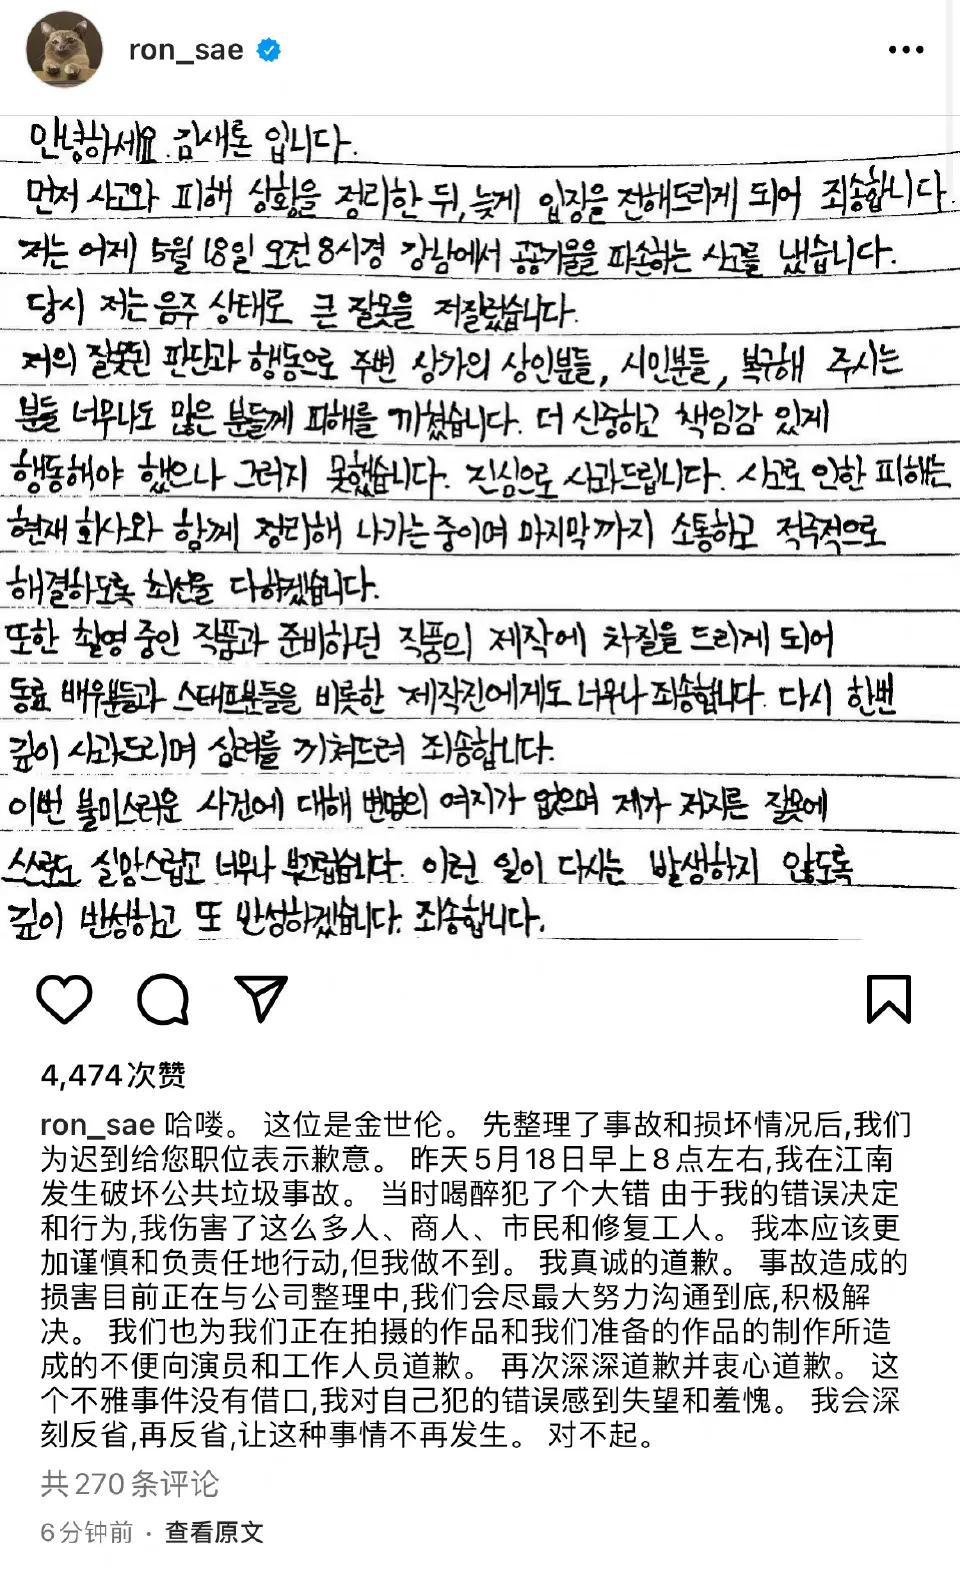 ron_sae
안녕하세요. 김새론 입니다.
먼저 사고와 피해 상황을 정리한 뒤, 늦게 입장을 전해드리게 되어 죄송합니다.
저는 어제 5월 18일 오전 8시경 강남에서 공공기물을 파손하는 사고를 냈습니다.
당시 저는 음주 상태로 큰 잘못을 저질렀습니다.
저의 잘못된 판단과 행동으로 주변 상가의 상인분들, 시민분들, 복구해 주시는
분들 너무나도 많은 분들께 피해를 끼쳤습니다. 더 신중하고 책임감 있게
행동해야 했으나 그러지 못했습니다. 진심으로 사과드립니다. 사고로 인한 피해는
현재 회사와 함께 정리해 나가는 중이며 마지막까지 소통하고 적극적으로
해결하도록 최선을 다하겠습니다.
또한 촬영 중인 작품과 준비하던 작품의 제작에 차질을 드리게 되어
동료 배우분들과 스태프분들을 비롯한 제작진에게도 너무나 죄송합니다. 다시 한번
깊이 사과드리며 심려를 끼쳐드려 죄송합니다.
이번 불미스러운 사건에 대해 변명의 여지가 없으며 제가 저지른 잘못에
스스로도 실망스럽고 너무나 부끄럽습니다. 이런 일이 다시는 발생하지 않도록
깊이 반성하고 또 반성하겠습니다. 죄송합니다.
4,474次赞
ron_sae 哈喽。 这位是金世伦。 先整理了事故和损坏情况后,我们
为迟到给您职位表示歉意。 昨天5月18日早上8点左右,我在江南
发生破坏公共垃圾事故。 当时喝醉犯了个大错 由于我的错误决定
和行为,我伤害了这么多人、商人、市民和修复工人。 我本应该更
加谨慎和负责任地行动,但我做不到。 我真诚的道歉。 事故造成的
损害目前正在与公司整理中,我们会尽最大努力沟通到底,积极解
决。 我们也为我们正在拍摄的作品和我们准备的作品的制作所造
成的不便向演员和工作人员道歉。 再次深深道歉并衷心道歉。 这
个不雅事件没有借口,我对自己犯的错误感到失望和羞愧。 我会深
刻反省,再反省,让这种事情不再发生。 对不起。
共270条评论
6分钟前 · 查看原文